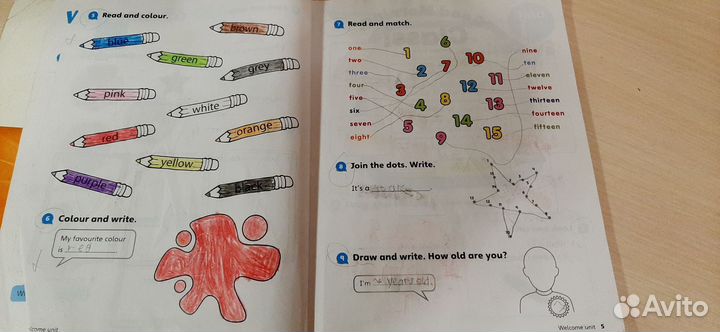 5 Read and colour.
blue
brown
green
grey
pink
white
red
orange
yellow
purple
black
6 Colour and write.
My favourite colour
is red
Welcome unit
7 Read and match.
one
two
three
four
five
six
seven
eight
1
2
3
4
5
6
7
8
9
10
11
12
13
14
15
nine
ten
eleven
twelve
thirteen
fourteen
fifteen
8 Join the dots. Write.
It's a
9 Draw and write. How old are you?
I'm 7 years old.
Welcome unit 5
Avito